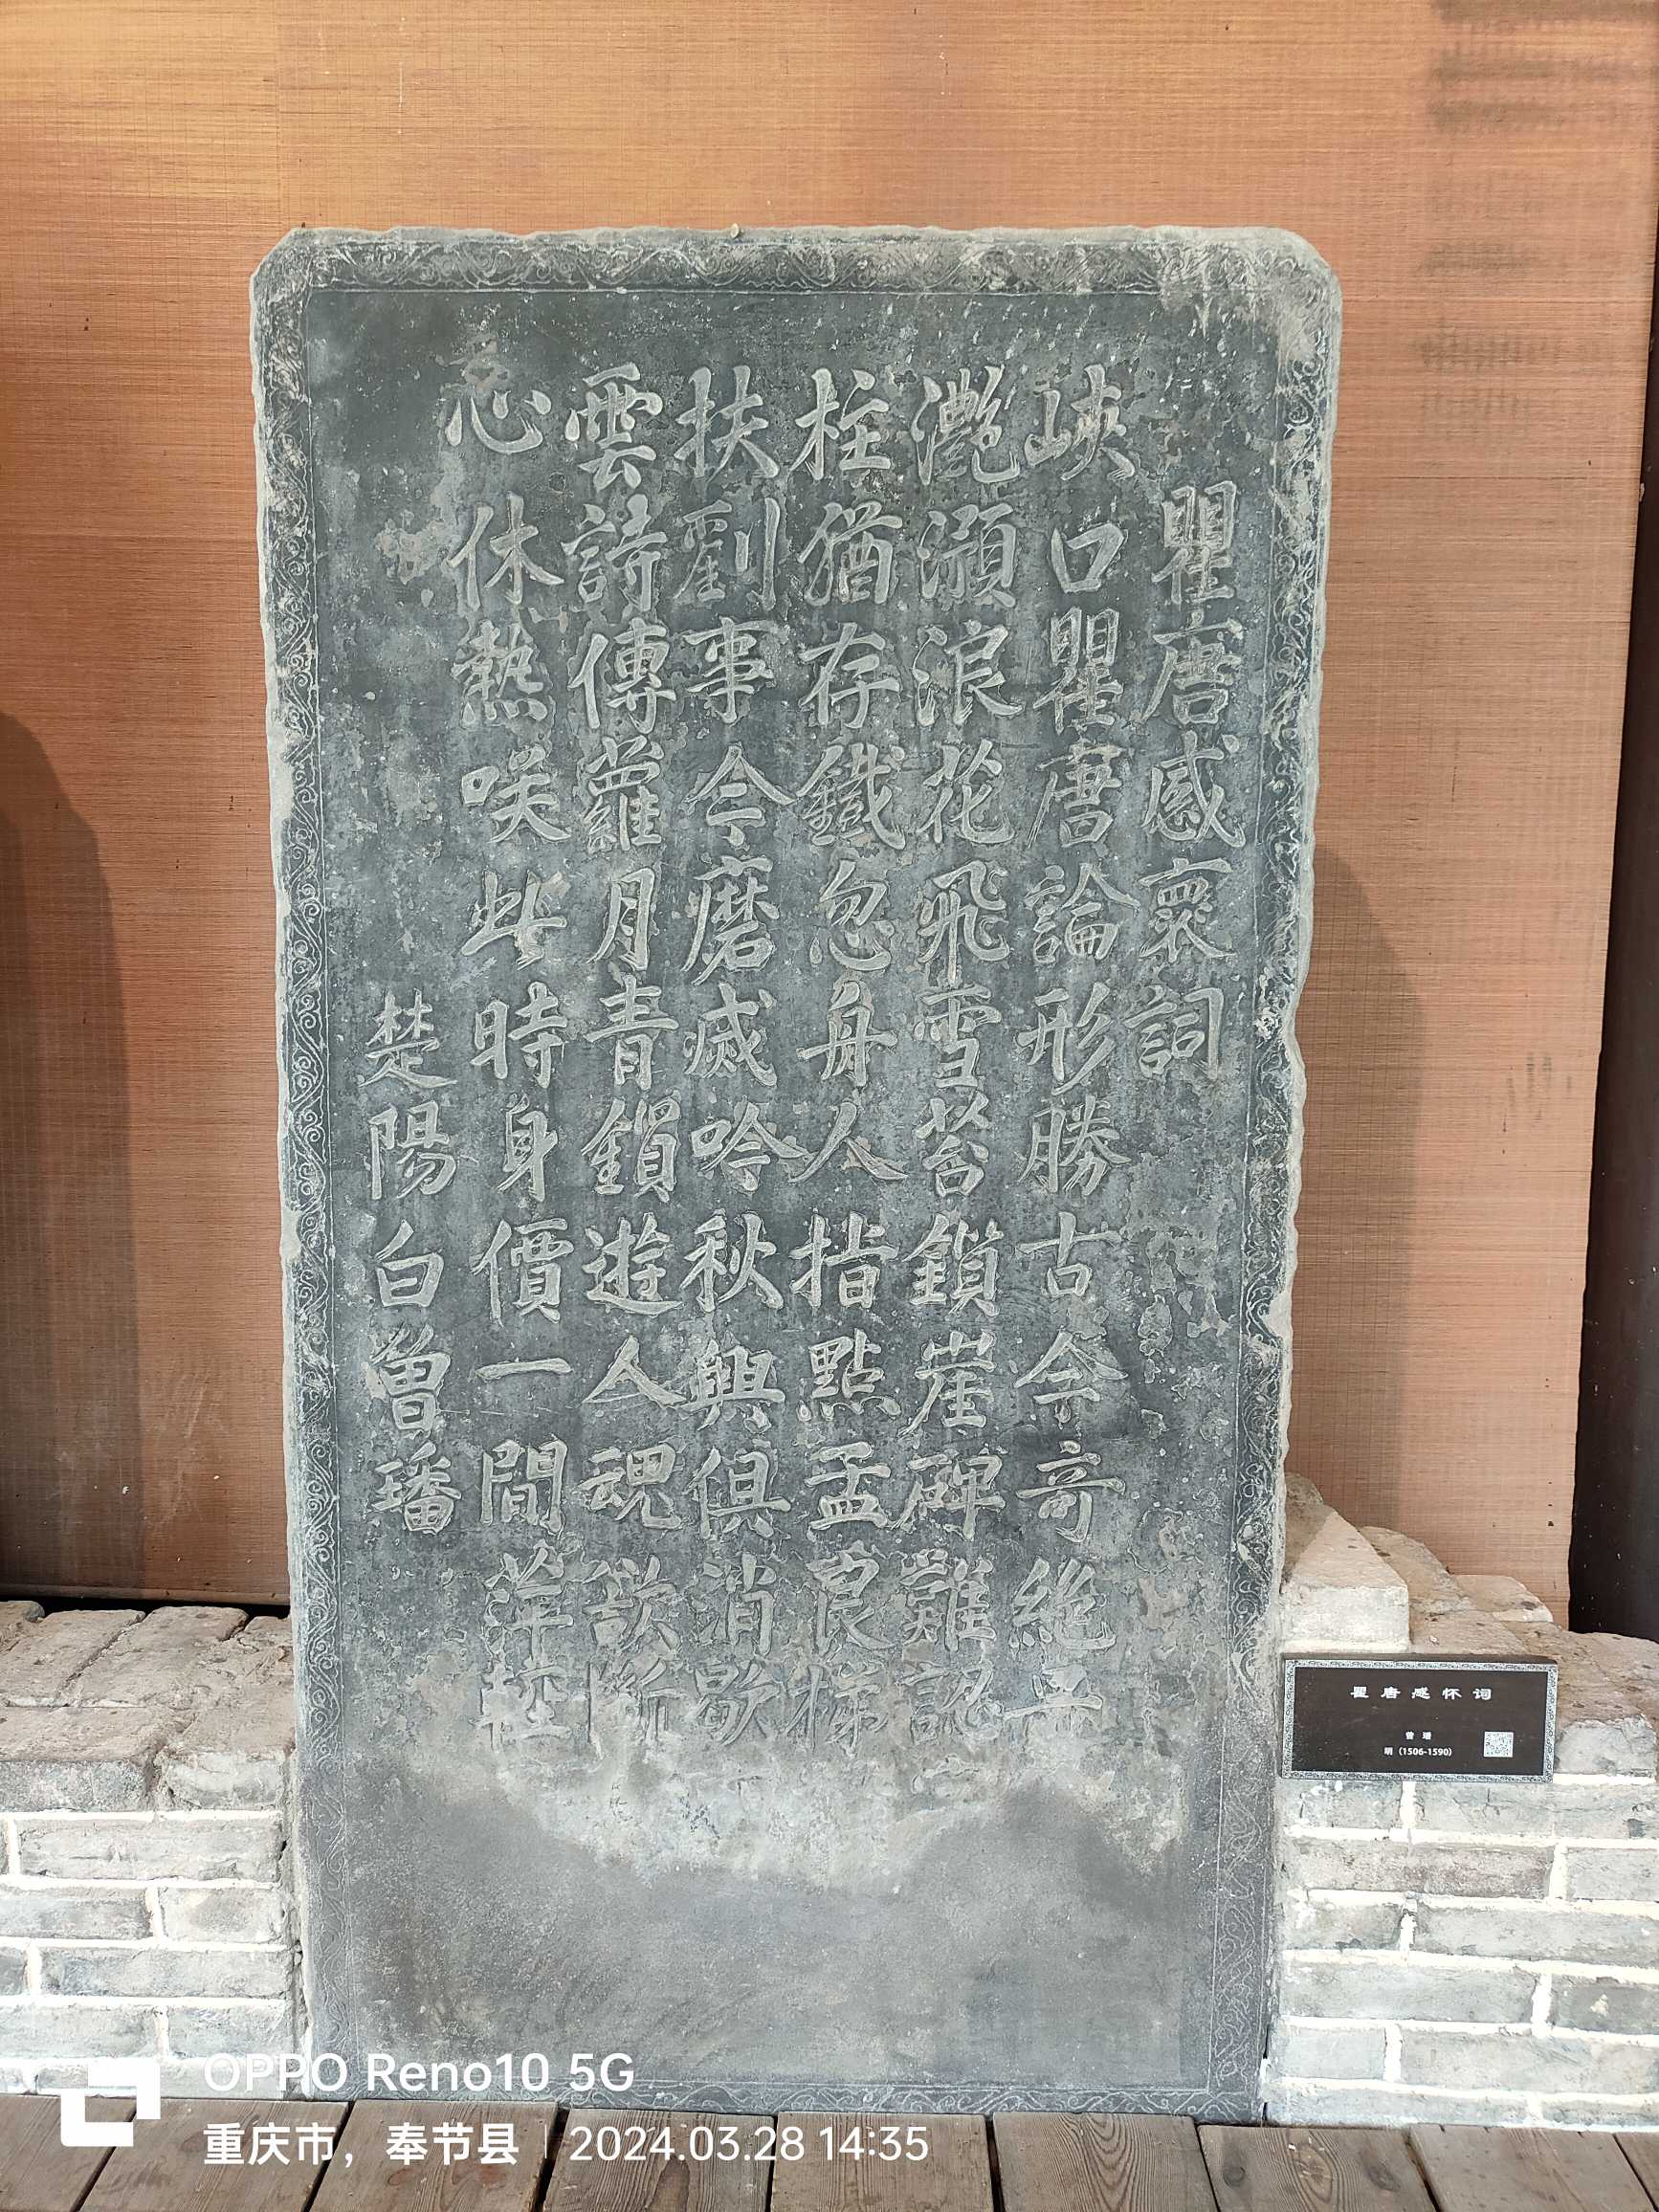 瞿唐感褱詞
峽口瞿唐論形勝古今奇絶
灧澦浪花飛雪苔鎖崖碑難認
柱猶存鐵忽舟人指點孟良梯
扶劉事今磨滅吟秋興俱消歇
雲詩傳蘿月青鎖遊人魂欲斷
心休熱咲此時身價一間萍輕
楚陽白曾璠
瞿唐感怀词
曾璠
明（1506-1590）
OPPO Reno10 5G
重庆市，奉节县 | 2024.03.28 14:35